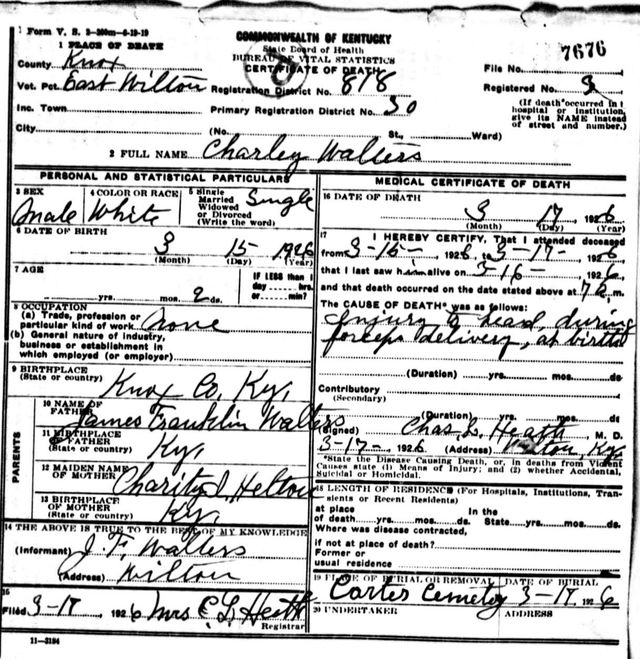 Form V. S. 2-200m-6-19-19
COMMONWEALTH OF KENTUCKY
State Board of Health
BUREAU OF VITAL STATISTICS
CERTIFICATE OF DEATH
1 PLACE OF DEATH
County Knox
Vot. Pct. East Wilton
Inc. Town
City
Registration District No. 818
Primary Registration District No. 30
File No. 7676
Registered No.
(If death occurred in
hospital or institution,
give its NAME instead
of street and number.)
(No. St., Ward)
2 FULL NAME Charley Walters
PERSONAL AND STATISTICAL PARTICULARS
3 SEX Male
4 COLOR OR RACE White
5 Single Married Widowed or Divorced (Write the word) Single
6 DATE OF BIRTH
3 15 1926
(Month) (Day) (Year)
7 AGE
yrs. mos. 2 ds.
IF LESS than 1
day hrs.
or min?
8 OCCUPATION
(a) Trade, profession or
particular kind of work None
(b) General nature of industry,
business or establishment in
which employed (or employer)
9 BIRTHPLACE
(State or country) Knox Co, Ky,
PARENTS
10 NAME OF
FATHER James Franklin Walters
11 BIRTHPLACE
OF FATHER
(State or country) Ky,
12 MAIDEN NAME
OF MOTHER Charity Helton
13 BIRTHPLACE
OF MOTHER
(State or country) Ky,
14 THE ABOVE IS TRUE TO THE BEST OF MY KNOWLEDGE
(Informant) J F. Walters
(Address) Wilton
15
Filed 3-18 1926 Mrs C L Heath
Registrar
11-3184
MEDICAL CERTIFICATE OF DEATH
16 DATE OF DEATH
3 17, 1926
(Month) (Day) (Year)
17 I HEREBY CERTIFY, That I attended deceased
from 3-15- 1926, 3-17- 1926
that I last saw h alive on 3-16- 1926
and that death occurred on the date stated above at 7 m.
The CAUSE OF DEATH* was as follows:
Injury to head, during
forceps delivery, at birth
(Duration) yrs. mos. ds
Contributory
(Secondary)
(Duration) yrs. mos. ds
(Signed) Chas. L. Heath M. D.
3-17- 1926 (Address) Wilton, Ky.
*State the Disease Causing Death, or, in deaths from Violent
Causes state (1) Means of Injury; and (2) whether Accidental,
Suicidal or Homicidal.
18 LENGTH OF RESIDENCE (For Hospitals, Institutions, Tran-
sients or Recent Residents)
at place In the
of death yrs. mos. ds. State yrs. mos. ds.
Where was disease contracted,
if not at place of death?
Former or
usual residence
19 PLACE OF BURIAL OR REMOVAL
Carter Cemetery
DATE OF BURIAL
3-18, 1926
20 UNDERTAKER
ADDRESS